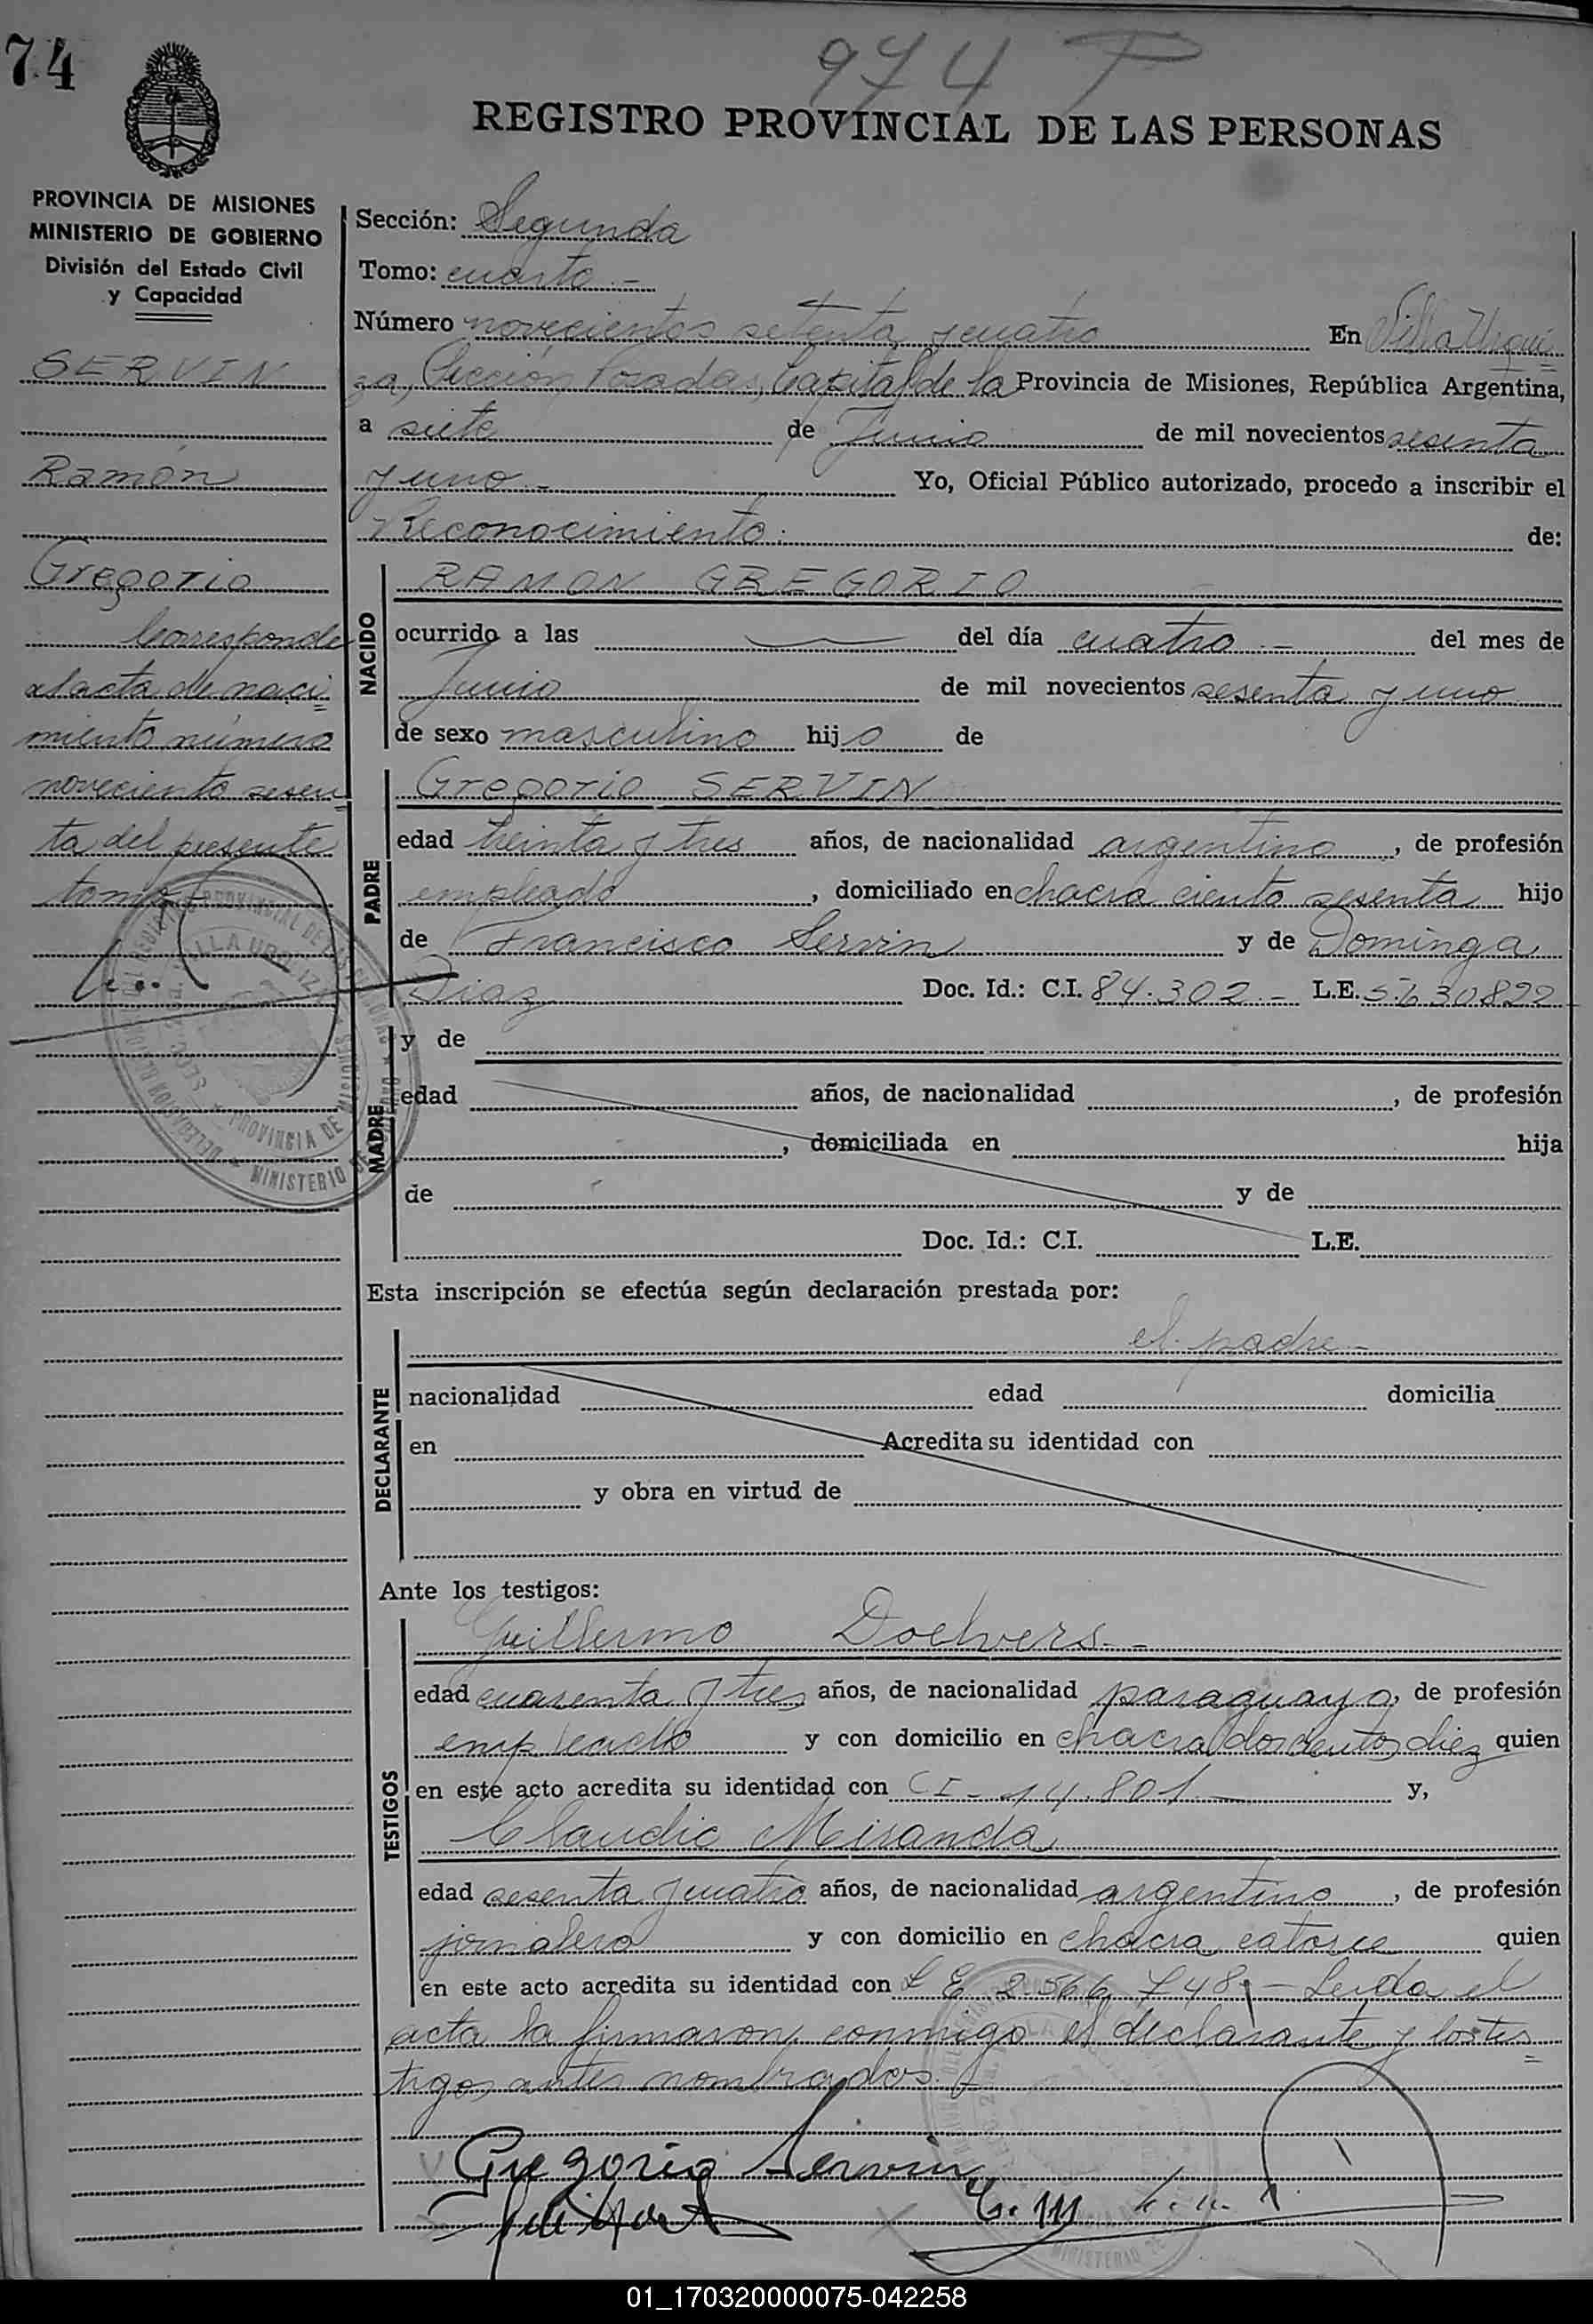 74
974 P
REGISTRO PROVINCIAL DE LAS PERSONAS
PROVINCIA DE MISIONES
MINISTERIO DE GOBIERNO
División del Estado Civil
y Capacidad
SERVIN
Ramón
Gregorio
Corresponde
al acta de naci=
miento número
noveciento sesen=
ta del presente
tomo
Sección: Segunda
Tomo: cuarto.-
Número novecientos setenta y cuatro En Villa Urqui=
za, Sección Posadas, Capital de la Provincia de Misiones, República Argentina,
a siete de Junio de mil novecientos sesenta
y uno.- Yo, Oficial Público autorizado, procedo a inscribir el
Reconocimiento: de:
NACIDO
RAMON GREGORIO
ocurrido a las — del día cuatro.- del mes de
Junio de mil novecientos sesenta y uno
de sexo masculino hijo de
PADRE
Gregorio SERVIN
edad treinta y tres años, de nacionalidad argentino, de profesión
empleado, domiciliado en chacra ciento sesenta hijo
de Francisco Servin y de Dominga
Diaz Doc. Id.: C.I. 84.302.- L.E. 5.630822
MADRE
y de
edad años, de nacionalidad , de profesión
, domiciliada en hija
de y de
Doc. Id.: C.I. L.E.
Esta inscripción se efectúa según declaración prestada por:
DECLARANTE
el padre.-
nacionalidad edad domicilia
en Acredita su identidad con
y obra en virtud de
Ante los testigos:
TESTIGOS
Guillermo Doelvers.-
edad cuarenta y tres años, de nacionalidad paraguayo, de profesión
empleado y con domicilio en chacra doscientos diez quien
en este acto acredita su identidad con CI - 14.801.- y,
Claudio Miranda
edad sesenta y cuatro años, de nacionalidad argentino, de profesión
jornalero y con domicilio en chacra catorce quien
en este acto acredita su identidad con L E 2.566.748.- Leida el
acta la firmaron conmigo el declarante y los tes=
tigos antes nombrados.
Gregorio Servin
C. M
01_170320000075-042258